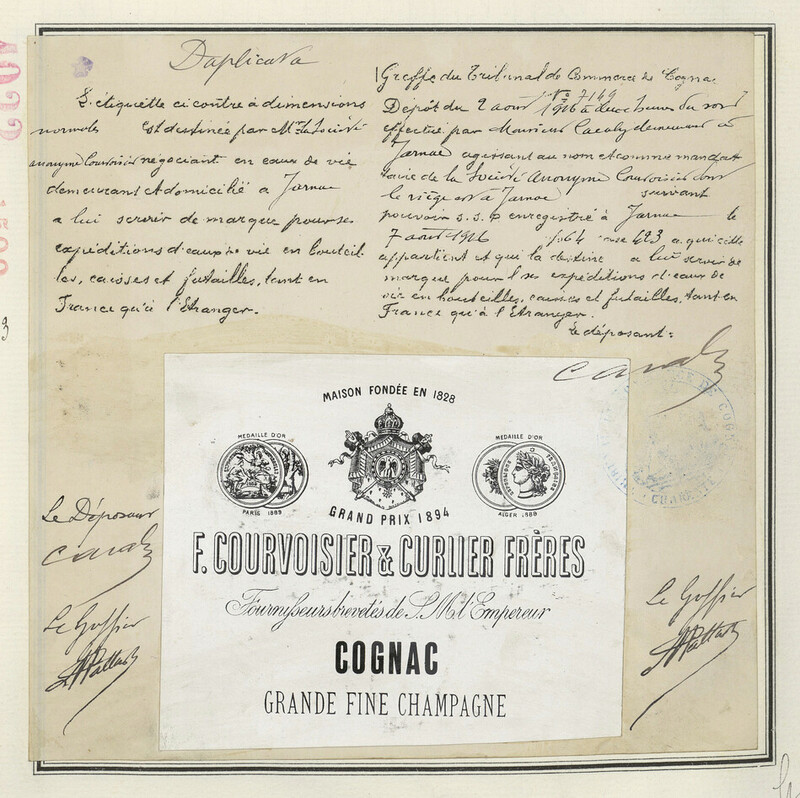 Duplicata
L'étiquette ci contre à dimensions
normales Est destinée par Mrs la Société
anonyme Courvoisier négociant en eaux de vie
demeurant et domicilié à Jarnac
a lui servir de marque pour ses
expéditions d'eaux de vie en bouteil
les, caisses et futailles, tant en
France qu'à l'Etranger.
Greffe du Tribunal de Commerce de Cognac
No 7149
Dépôt du 2 aout 1926 à deux heures du soir
effectué par Monsieur demeurant à
Jarnac agissant au nom et comme mandat
taire de la Société Anonyme Courvoisier dont
le siège est à Jarnac suivant
pouvoir s.s.p enregistré à Jarnac le
7 aout 1926 fo 64 case 423 a qui cette
appartient et qui la destine a lui servir de
marque pour ses expéditions d'eaux de
vie en bouteilles, caisses et futailles, tant en
France qu'à l'Etranger.
Le déposant:
MAISON FONDÉE EN 1828
MEDAILLE D'OR
PARIS 1889
GRAND PRIX 1894
MEDAILLE D'OR
ALGER 1888
F. COURVOISIER & CURLIER FRÈRES
Fournisseurs brevetés de S. M. l'Empereur
COGNAC
GRANDE FINE CHAMPAGNE
Le Déposant
Le Greffier
Le Greffier
CHARENTE
3